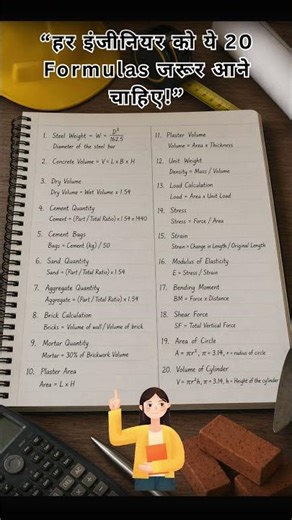 “हर इंजीनियर को ये 20
Formulas जरूर आने
चाहिए!”
1. Steel Weight = W = D²/162.5
Diameter of the steel bar
2. Concrete Volume = V = L x B x H
3. Dry Volume
Dry Volume = Wet Volume x 1.54
4. Cement Quantity
Cement = (Part / Total Ratio) x 1.54 x 1440
5. Cement Bags
Bags = Cement (kg) / 50
6. Sand Quantity
Sand = (Part / Total Ratio) x 1.54
7. Aggregate Quantity
Aggregate = (Part / Total Ratio) x 1.54
8. Brick Calculation
Bricks = Volume of wall / Volume of brick
9. Mortar Quantity
Mortar = 30% of Brickwork Volume
10. Plaster Area
Area = L x H
11. Plaster Volume
Volume = Area x Thickness
12. Unit Weight
Density = Mass / Volume
13. Load Calculation
Load = Area x Unit Load
14. Stress
Stress = Force / Area
15. Strain
Strain = Change in Length / Original Length
16. Modulus of Elasticity
E = Stress / Strain
17. Bending Moment
BM = Force x Distance
18. Shear Force
SF = Total Vertical Force
19. Area of Circle
A = πr², π = 3.14, r = radius of circle
20. Volume of Cylinder
V = πr²h, π = 3.14, h = Height of the cylinder